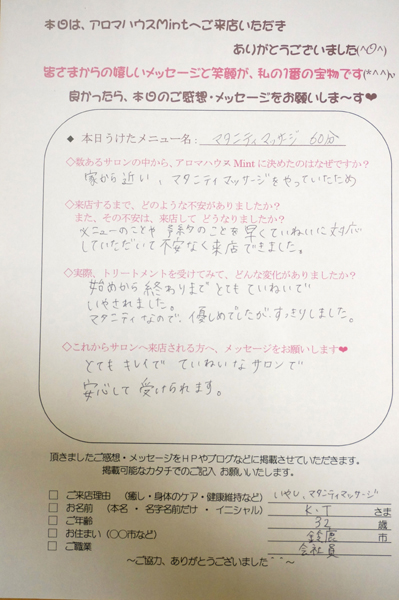 本日は、アロマハウスMintへご来店いただき
ありがとうございました(^O^)
皆さまからの嬉しいメッセージと笑顔が、私の1番の宝物です(*^^*)v
良かったら、本日のご感想・メッセージをお願いしま～す♥
◆ 本日うけたメニュー名: マタニティマッサージ 60分
◇数あるサロンの中から、アロマハウス Mint に決めたのはなぜですか?
家から近い、マタニティマッサージをやっていたため
◇来店するまで、どのような不安がありましたか?
また、その不安は、来店して どうなりましたか?
メニューのことや 予約のことを 早くていねいに対応
していただいて 不安なく来店できました。
◇実際、トリートメントを受けてみて、どんな変化がありましたか?
始めから 終わりまで とても ていねいで
いやされました。
マタニティなので、優しめでしたが、すっきりしました。
◇これからサロンへ来店される方へ、メッセージをお願いします♥
とても キレイで ていねいな サロンで
安心して 受けられます。
頂きましたご感想・メッセージをHPやブログなどに掲載させていただきます。
掲載可能なカタチでのご記入 お願いいたします。
□ ご来店理由 (癒し・身体のケア・健康維持など) いやし、マタニティマッサージ
□ お名前 (本名・名字名前だけ・イニシャル) K.T さま
□ ご年齢 32 歳
□ お住まい (〇〇市など) 鈴鹿 市
□ ご職業 会社員
～ご協力、ありがとうございました＾＾～